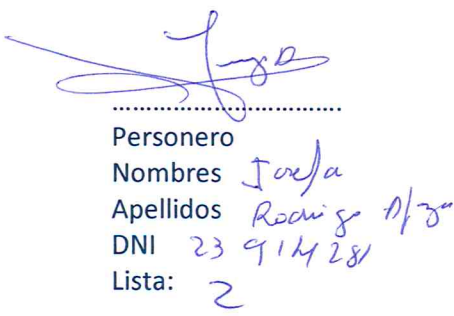 Personero
Nombres Josefa
Apellidos Rodrigo
DNI 23914281
Lista: 2